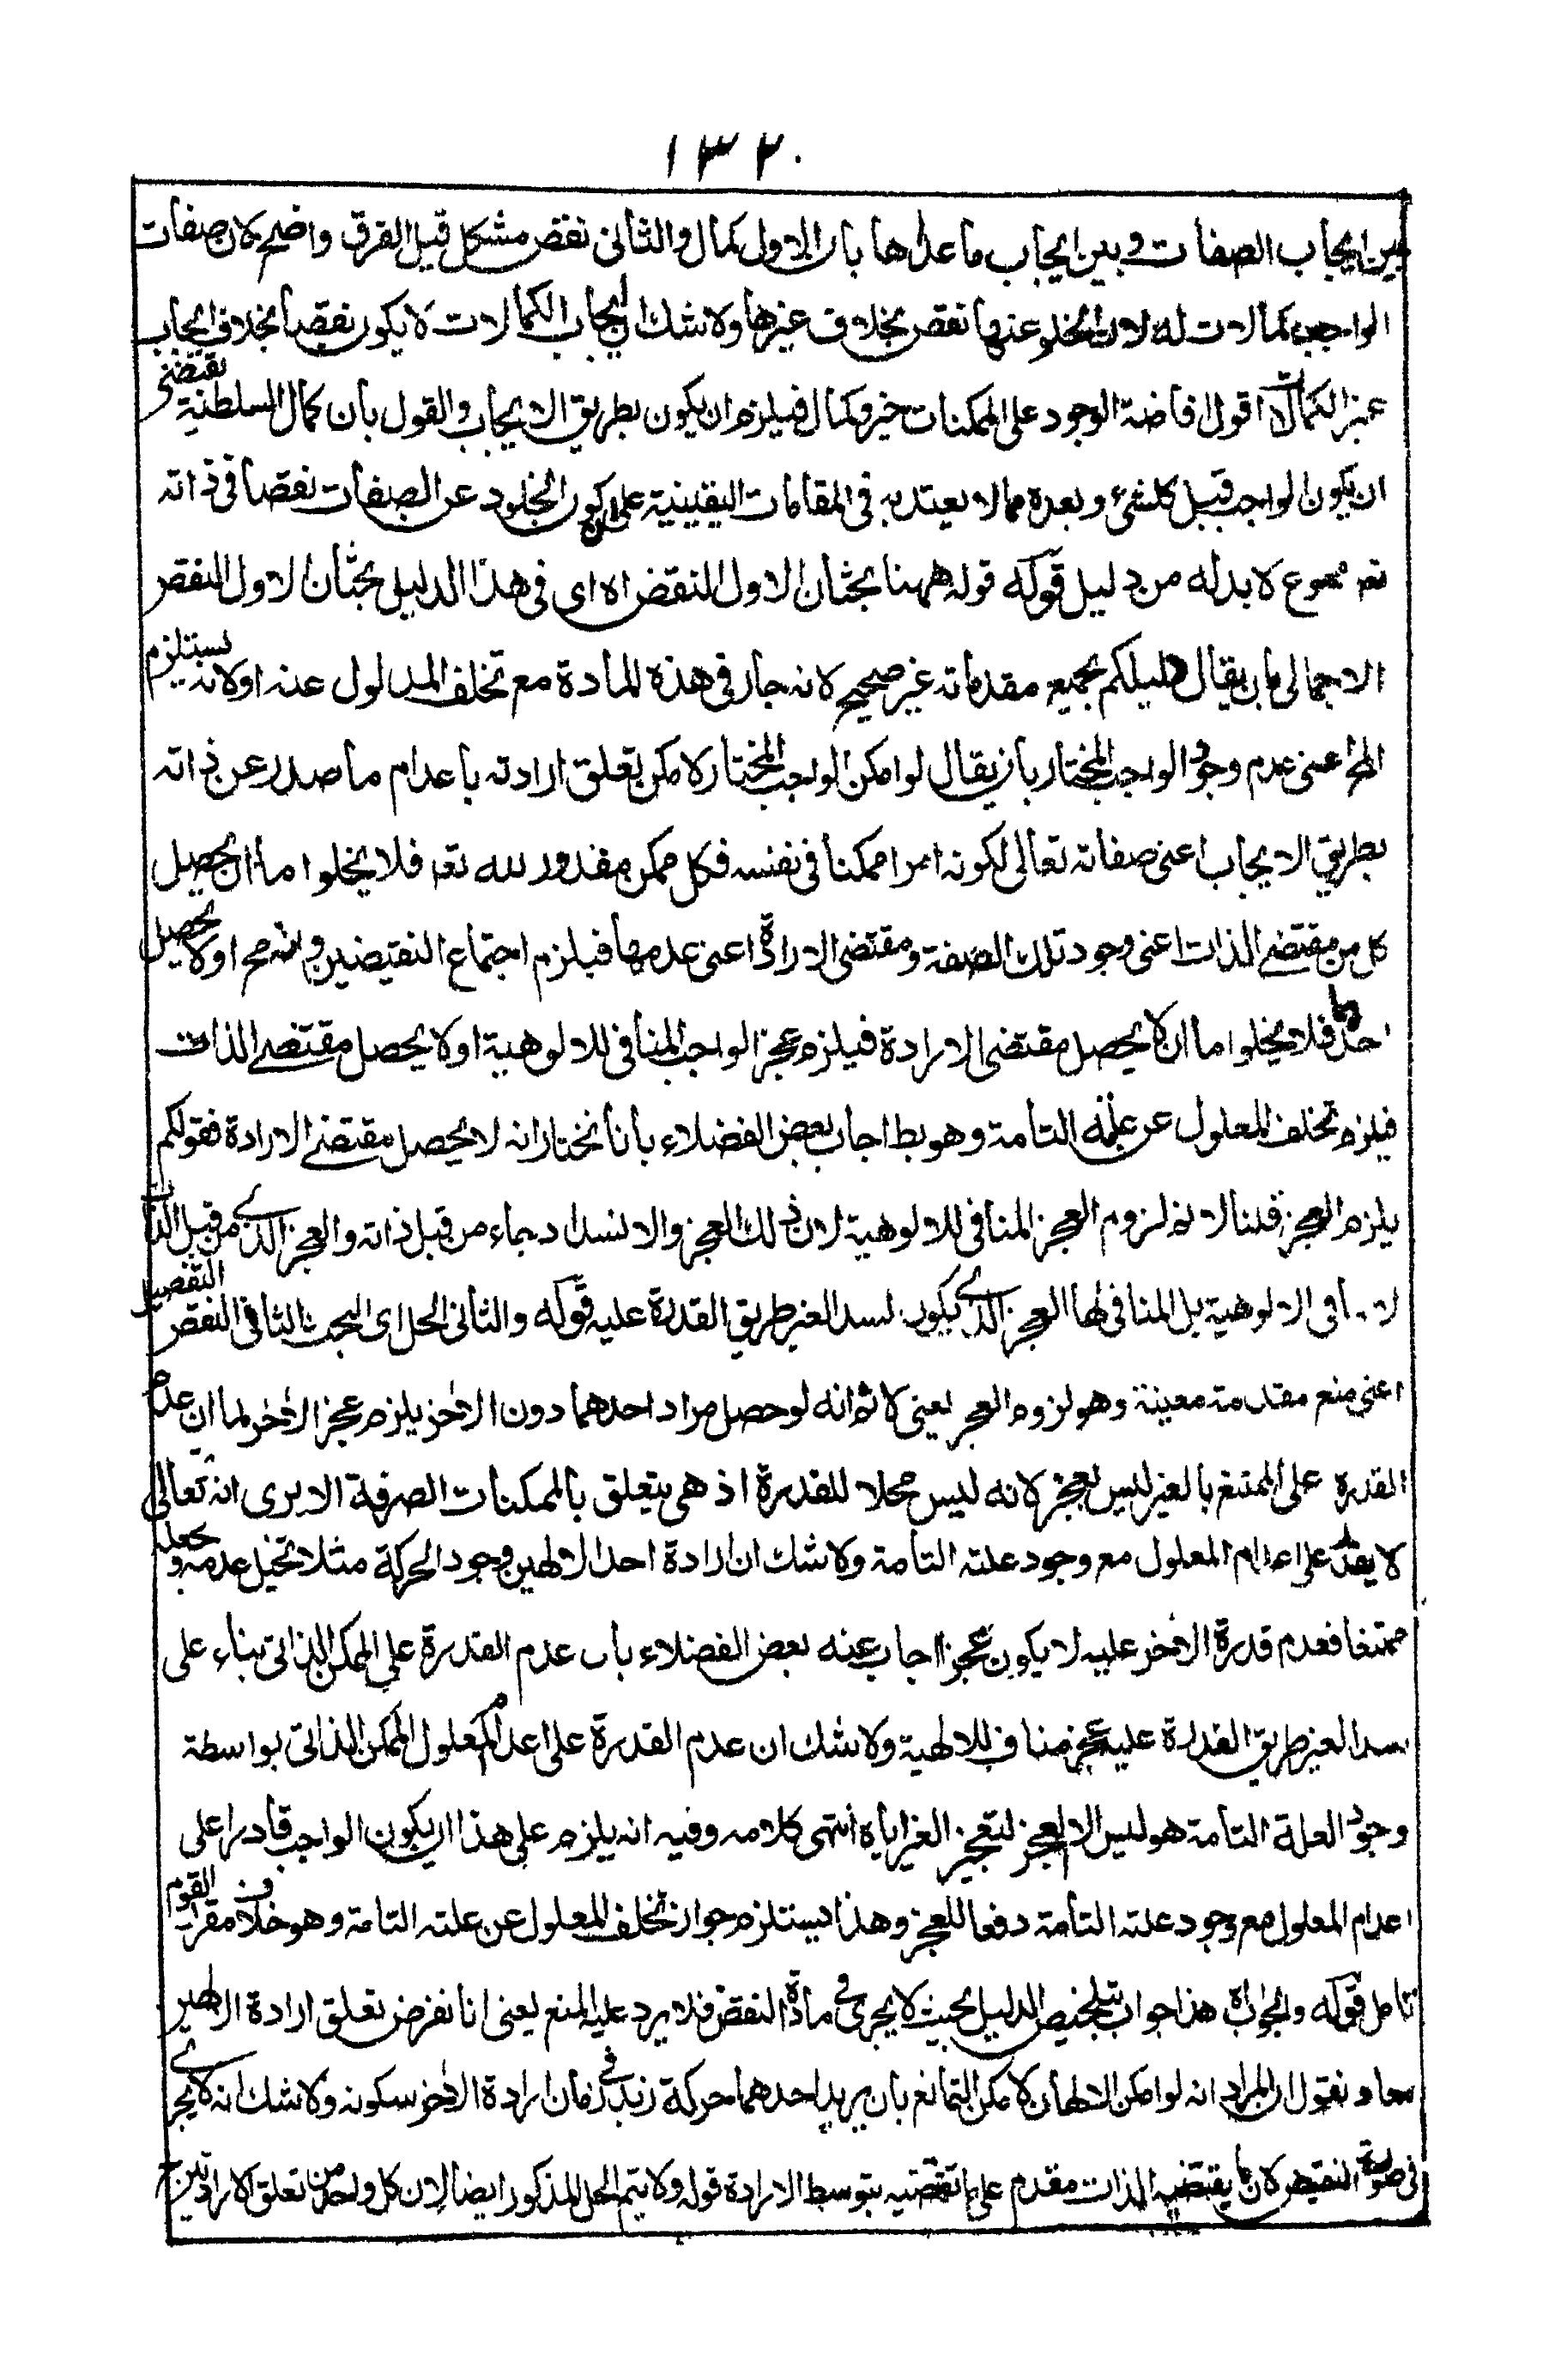 ١٣٢٠
بين ايجاب الصفات وبين ايجاب ما عداها بان الاول كمال والثانى نقص مشكل قيل الفرق واضح لان صفات
الواجب كمالات له لان الخلو عنها نقص بخلاف غيرها ولا شك ان ايجاب الكمالات لا يكون نقصا بخلاف ايجاب
غير الكمالات اقول افاضة الوجود على الممكنات خير وكمال فيلزم ان يكون بطريق الايجاب والقول بان كمال السلطنة يقتضى
ان يكون الواجب قبل كلشئ وبعده مما لا يعتد به فى المقامات اليقينية على ان كون الخلود عن الصفات نقصا فى ذاته
تعم ممنوع لا بد له من دليل قوله قوله ههنا بحثان الاول النقض اه اى فى هذا الدليل بحثان الاول النقض
الاجمالى بان يقال دليلكم بجميع مقدماته غير صحيح لانه جار فى هذه المادة مع تخلف المدلول عنه اولانه يستلزم
المح اعنى عدم وجود الواجب المختار بان يقال لو امكن الواجب المختار لامكن تعلق ارادته باعدام ما صدر عن ذاته
بطريق الايجاب اعنى صفاته تعالى لكونه امرا ممكنا فى نفسه فكل ممكن مقدور لله تعم فلا يخلوا ما ان يحصل
كل من مقتضى الذات اعنى وجود تلك الصفة ومقتضى الارادة اعنى عدمها فيلزم اجتماع النقيضين وانه مح اولا يحصل
احدهما فلا يخلوا ما ان لا يحصل مقتضى الارادة فيلزم عجز الواجب المنافى للالوهية او لا يحصل مقتضى الذات
فيلزم تخلف المعلول عن علته التامة وهو بط اجاب بعض الفضلاء بانا نختار انه لا يحصل مقتضى الارادة فقولكم
يلزم العجز قلنا لا نم لزوم العجز المنافى للالوهية لان ذلك العجز والانسداد جاء من قبل ذاته والعجز الذى من قبل الذات
لا ينافى الالوهية بل المنافى لها العجز الذى يكون لسد الغير طريق القدرة عليه قوله والثانى الحل اى البحث الثانى النقض التفصيلى
اعنى منع مقدمة معينة وهو لزوم العجز يعنى لا نم انه لو حصل مراد احدهما دون الاخر يلزم عجز الاخر لما ان عدم
القدرة على الممتنع بالغير ليس بعجز لانه ليس محلا للقدرة اذ هى يتعلق بالممكنات الصرفة الا يرى انه تعالى
لا يقدر على اعدام المعلول مع وجود علته التامة ولا شك ان ارادة احد الالهين وجود الحركة مثلا تحيل عدمه ويجعله
ممتنعا فعدم قدرة الاخر عليه لا يكون عجزا اجاب عنه بعض الفضلاء بان عدم القدرة على الممكن الذاتى بناء على
سد الغير طريق القدرة عليه عجز مناف للالهية ولا شك ان عدم القدرة على اعدام المعلول الممكن الذاتى بواسطة
وجود العلة التامة هو ليس الا لعجز لتعجيز الغير اياه انتهى كلامه وفيه انه يلزم على هذا ان يكون الواجب قادرا على
اعدام المعلول مع وجود علته التامة دفعا للعجز وهذا يستلزم جواز تخلف المعلول عن علته التامة وهو خلاف مقرر القوم
تامل قوله والجواب اه هذا جواب بتلخيص الدليل بحيث لا يجرى فى مادة النقض فلا يرد عليه المنع يعنى انا نفرض تعلق ارادة الالهين
معا ونقول ان المراد انه لو امكن الالهان لامكن التمانع بان يريد احدهما حركة زيد فى زمان ارادة الاخر سكونه ولا شك انه لا يجرى
فى صورة النقيض لان ما يقتضيه الذات مقدم على ما تقتضيه بتوسط الارادة قوله ولا يتم الحل المذكور ايضا لان كل واحد من تعلق الارادتين